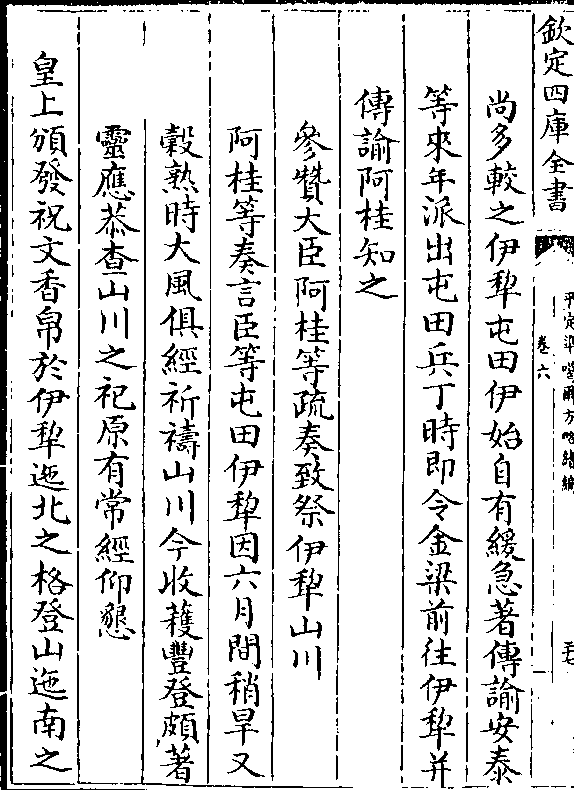 欽定四庫全書
平定準噶爾方略續編
卷六
尚多較之伊犂屯田伊始自有緩急著傳諭安泰
等來年派出屯田兵丁時即令金梁前往伊犂并
傳諭阿桂知之
參贊大臣阿桂等疏奏致祭伊犂山川
阿桂等奏言臣等屯田伊犂因六月間稍旱又
穀熟時大風俱經祈禱山川今收穫豐登頗著
靈應恭查山川之祀原有常經仰懇
皇上頒發祝文香帛於伊犂迤北之格登山迤南之